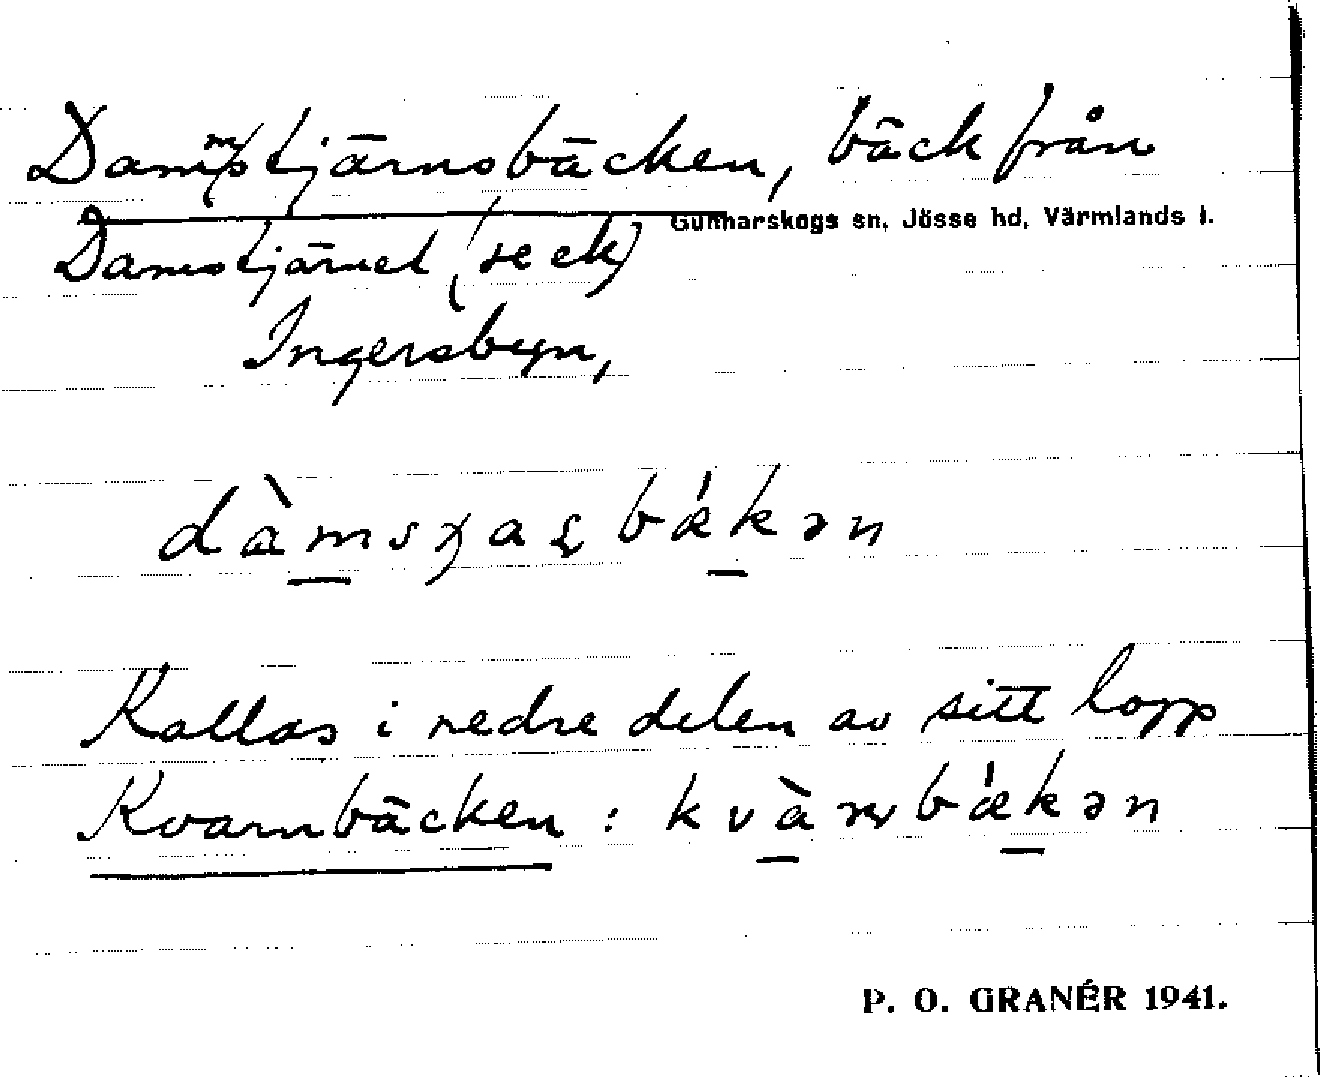 Dammstjärnsbäcken, bäck från
Gunnarskogs sn, Jösse hd, Värmlands l.
Damstjärnet (se ek)
Ingersbyn,
dàms bǽkən
Kallas i nedre delen av sitt lopp
Kvarnbäcken : kvàɳbǽkən
P. O. GRANÉR 1941.